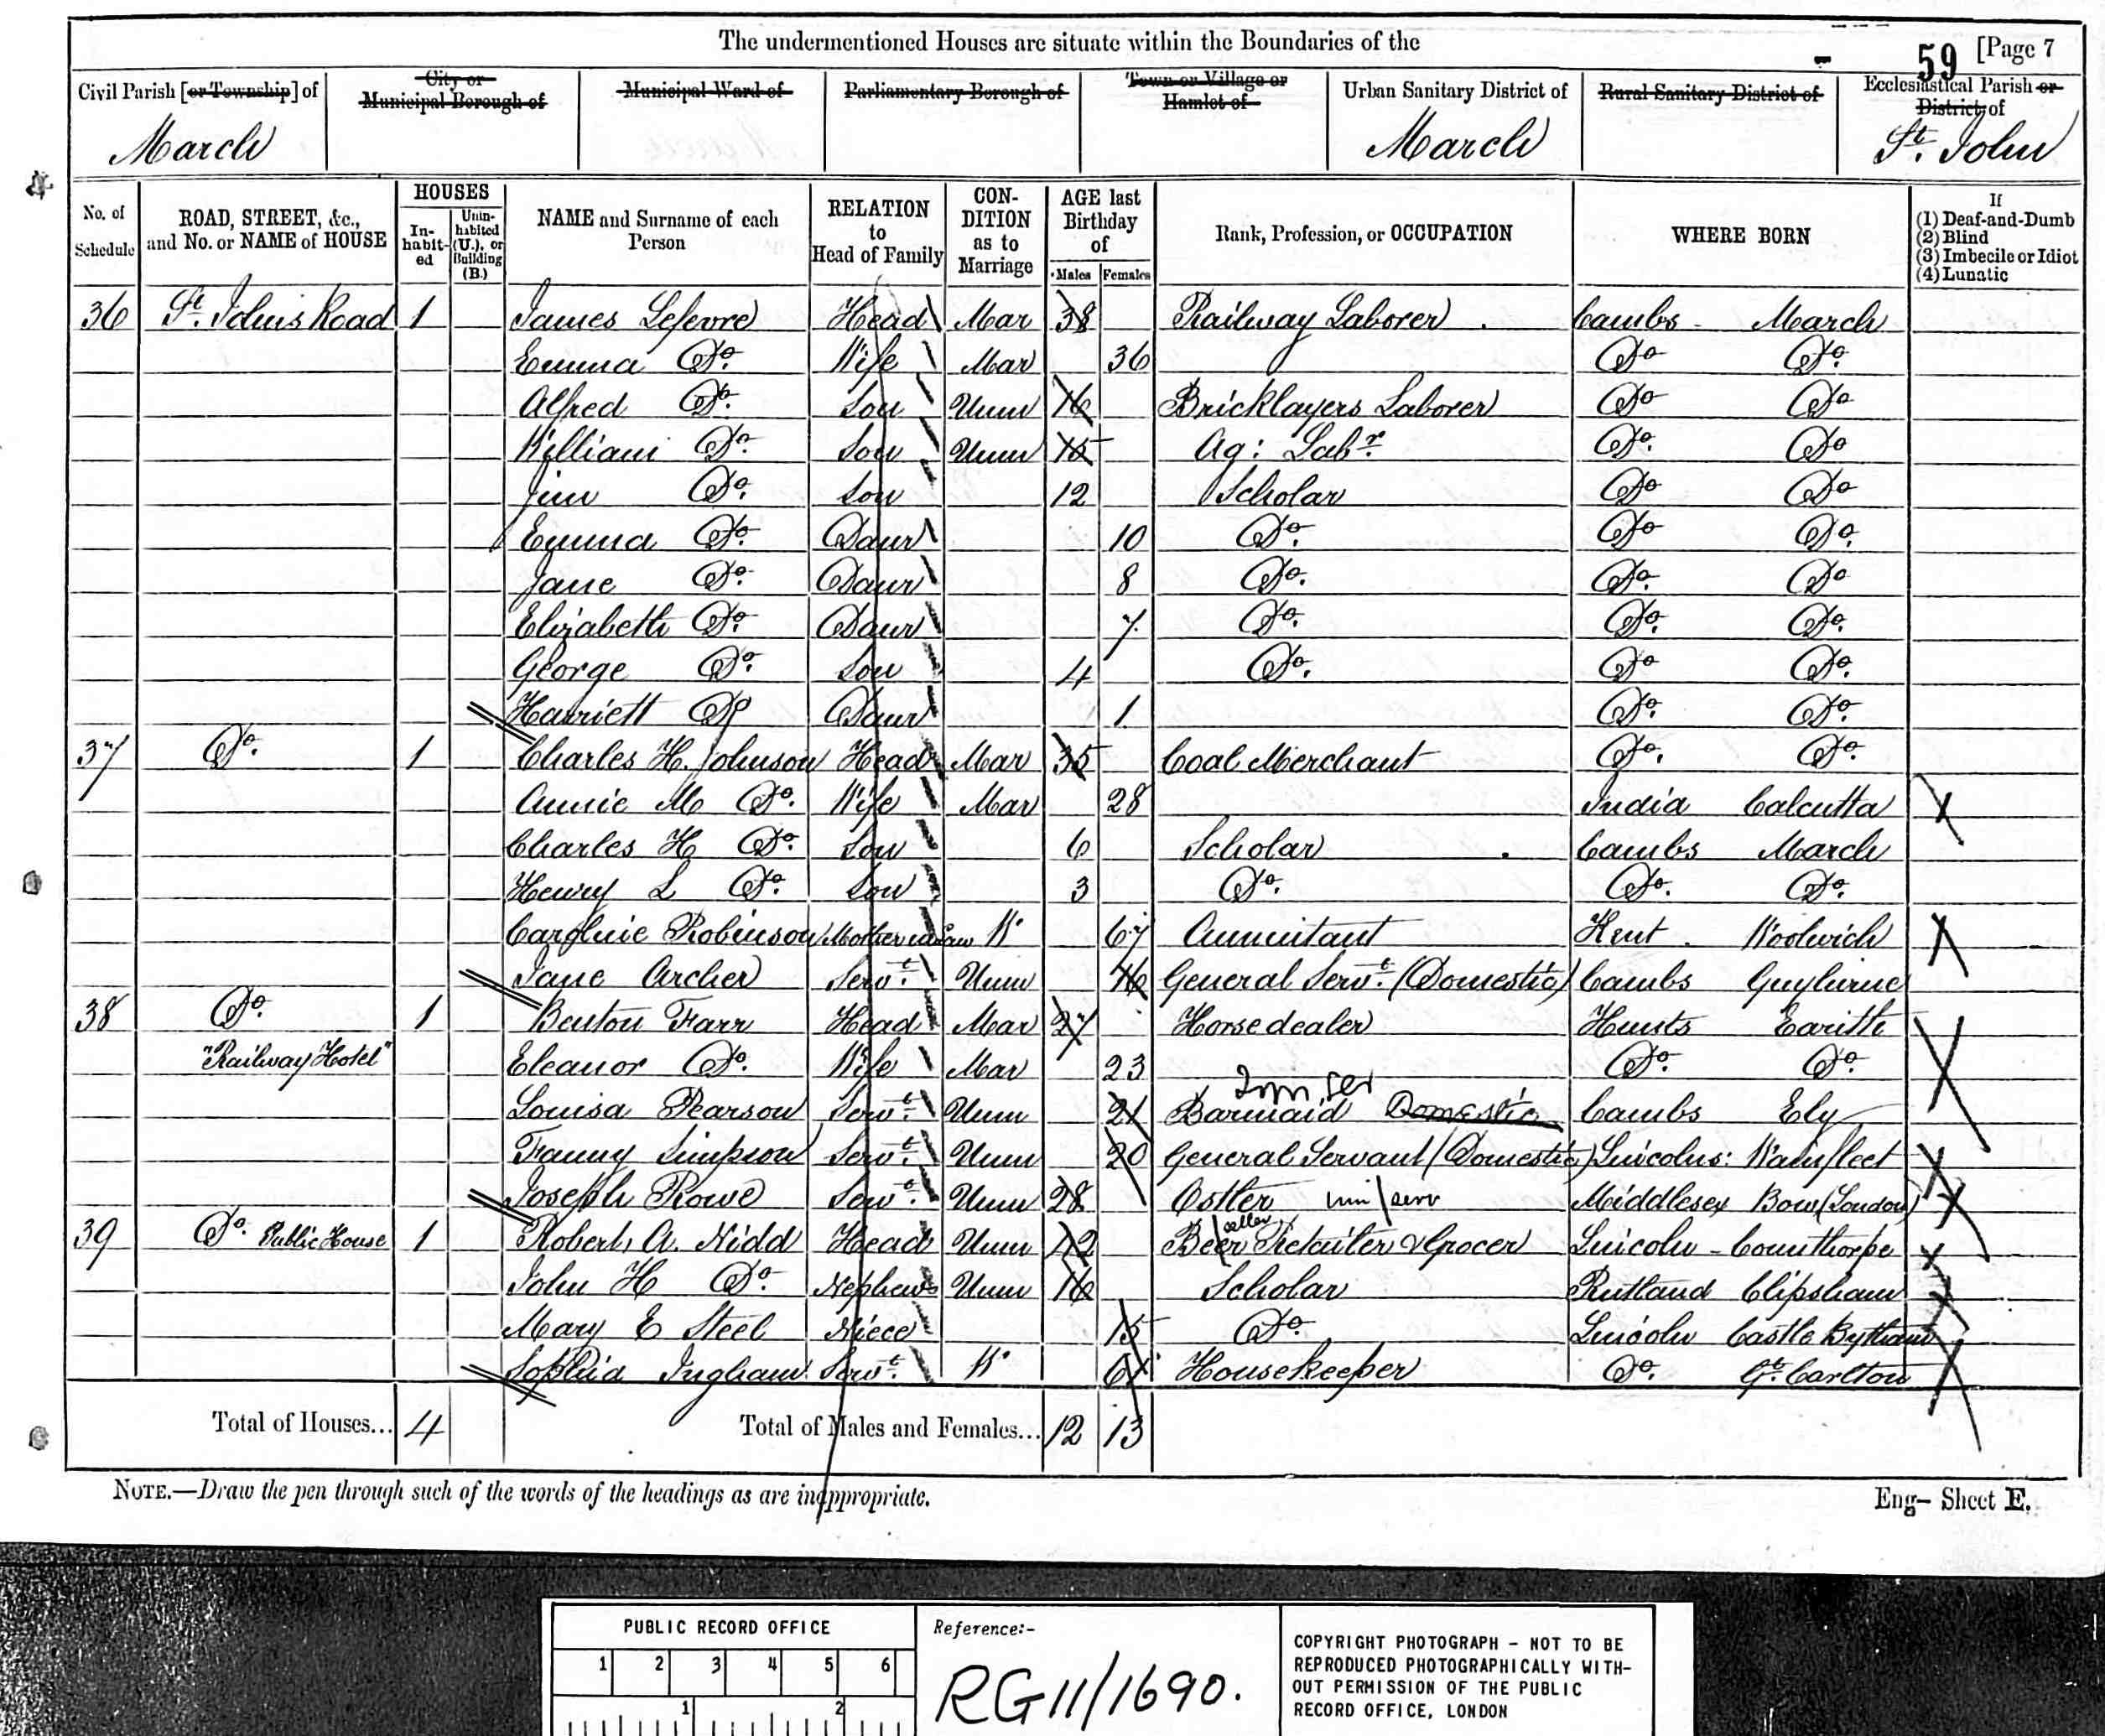 The undermentioned Houses are situate within the Boundaries of the
59 [Page 7
Civil Parish [or Township] of
City or Municipal Borough of
Municipal Ward of
Parliamentary Borough of
Town or Village or Hamlet of
Urban Sanitary District of
Rural Sanitary District of
Ecclesiastical Parish or District of
March March St. John
No. of Schedule
ROAD, STREET, &c., and No. or NAME of HOUSE
HOUSES
In-habit-ed
Unin-habited (U.), or Building (B.)
NAME and Surname of each Person
RELATION to Head of Family
CON-DITION as to Marriage
AGE last Birthday of
Males Females
Rank, Profession, or OCCUPATION
WHERE BORN
If
(1) Deaf-and-Dumb
(2) Blind
(3) Imbecile or Idiot
(4) Lunatic
36 St. Johns Road 1 James Lefevre Head Mar 38 Railway Laborer Cambs March
Emma Do. Wife Mar 36 Do Do.
Alfred Do. Son Unm 16 Bricklayers Laborer Do Do
William Do. Son Unm 15 Ag: Labr. Do. Do
Jim Do. Son 12 Scholar Do Do
Emma Do. Daur 10 Do. Do Do.
Jane Do. Daur 8 Do. Do. Do
Elizabeth Do. Daur 7 Do. Do. Do.
George Do. Son 4 Do. Do Do.
Harriett Do Daur 1 Do. Do.
37 Do. 1 Charles H. Johnson Head Mar 35 Coal Merchant Do. Do.
Annie M Do. Wife Mar 28 India Calcutta
Charles H Do. Son 6 Scholar Cambs March
Henry L Do. Son 3 Do. Do. Do.
Caroline Robinson Mother in Law W 67 Annuitant Kent Woolwich
Jane Archer Servt. Unm 16 General Servt. (Domestic) Cambs Guyhirne
38 Do. 1 Benton Farr Head Mar 27 Horsedealer Hunts Earith
"Railway Hotel" Eleanor Do. Wife Mar 23 Do. Do.
Inn ser
Louisa Pearson Servt. Unm 21 Barmaid Domestic Cambs Ely
Fanny Simpson Servt. Unm 20 General Servant (Domestic) Lincolns: Wainfleet
Joseph Rowe Servt. Unm 28 Ostler inn serv Middlesex Bow (London)
seller
39 Do. Public House 1 Robert A. Nidd Head Unm 42 Beer Retailer & Grocer Lincoln Counthorpe
John H Do. Nephew Unm 16 Scholar Rutland Clipsham
Mary E Steel Niece 15 Do. Lincoln Castle Bytham
Sophia Ingham Servt. W Housekeeper Do. Gt. Carlton
Total of Houses... 4 Total of Males and Females... 12 13
NOTE.—Draw the pen through such of the words of the headings as are inappropriate.
Eng— Sheet E.
PUBLIC RECORD OFFICE
1 2 3 4 5 6
1 2
Reference:-
RG11/1690.
COPYRIGHT PHOTOGRAPH - NOT TO BE
REPRODUCED PHOTOGRAPHICALLY WITH-
OUT PERMISSION OF THE PUBLIC
RECORD OFFICE, LONDON